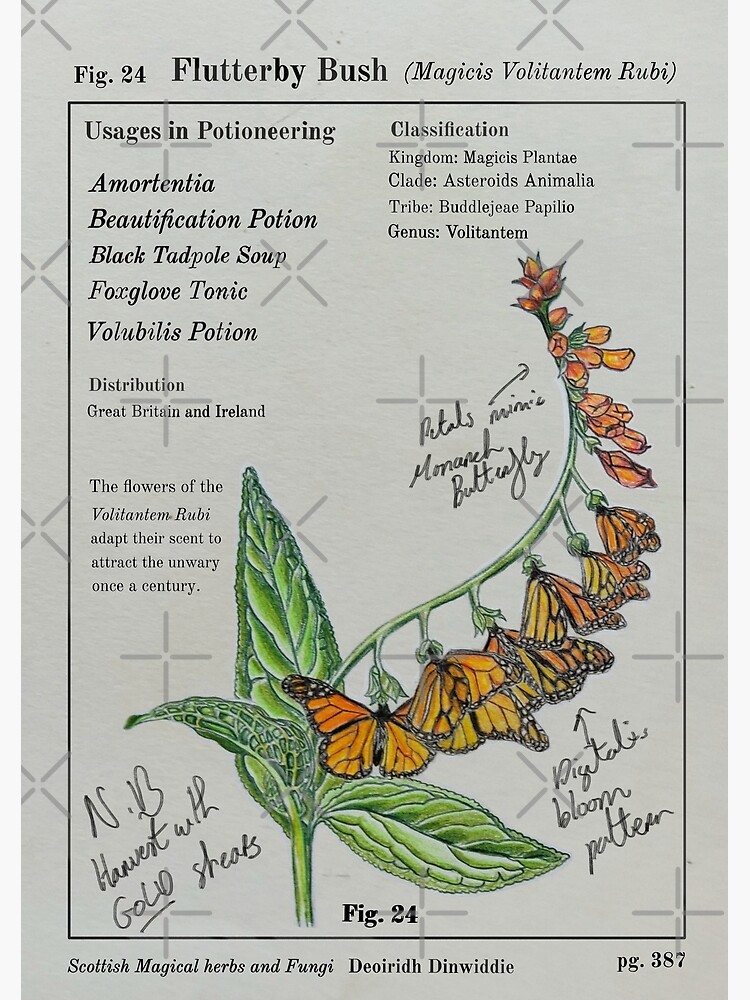 Fig. 24 Flutterby Bush (Magicis Volitantem Rubi)
Usages in Potioneering
Amortentia
Beautification Potion
Black Tadpole Soup
Foxglove Tonic
Volubilis Potion
Distribution
Great Britain and Ireland
Classification
Kingdom: Magicis Plantae
Clade: Asteroids Animalia
Tribe: Buddlejeae Papilio
Genus: Volitantem
Petals mimic
Monarch
Butterfly
The flowers of the
Volitantem Rubi
adapt their scent to
attract the unwary
once a century.
Digitalis
bloom
pattern
N.B
Harvest with
Gold shears
Fig. 24
Scottish Magical herbs and Fungi Deoiridh Dinwiddie
pg. 387